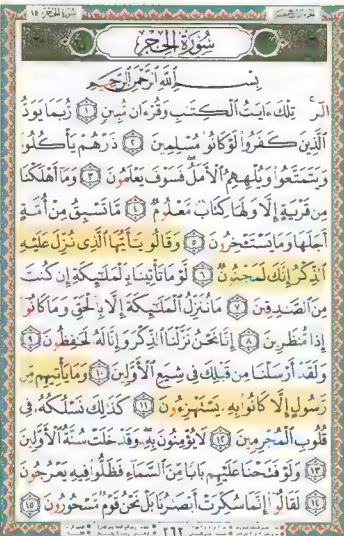 سُورَةُ الحِجْرِ ١٥
سُورَةُ الحِجْرِ
بِسْمِ ٱللَّهِ ٱلرَّحْمَٰنِ ٱلرَّحِيمِ
الٓر تِلْكَ ءَايَٰتُ ٱلْكِتَٰبِ وَقُرْءَانٍ مُّبِينٍ ١ رُّبَمَا يَوَدُّ
ٱلَّذِينَ كَفَرُوا۟ لَوْ كَانُوا۟ مُسْلِمِينَ ٢ ذَرْهُمْ يَأْكُلُوا۟
وَيَتَمَتَّعُوا۟ وَيُلْهِهِمُ ٱلْأَمَلُ فَسَوْفَ يَعْلَمُونَ ٣ وَمَآ أَهْلَكْنَا
مِن قَرْيَةٍ إِلَّا وَلَهَا كِتَابٌ مَّعْلُومٌ ٤ مَّا تَسْبِقُ مِنْ أُمَّةٍ
أَجَلَهَا وَمَا يَسْتَـْٔخِرُونَ ٥ وَقَالُوا۟ يَٰٓأَيُّهَا ٱلَّذِى نُزِّلَ عَلَيْهِ
ٱلذِّكْرُ إِنَّكَ لَمَجْنُونٌ ٦ لَّوْ مَا تَأْتِينَا بِٱلْمَلَٰٓئِكَةِ إِن كُنتَ
مِنَ ٱلصَّٰدِقِينَ ٧ مَا نُنَزِّلُ ٱلْمَلَٰٓئِكَةَ إِلَّا بِٱلْحَقِّ وَمَا كَانُوٓا۟
إِذًا مُّنظَرِينَ ٨ إِنَّا نَحْنُ نَزَّلْنَا ٱلذِّكْرَ وَإِنَّا لَهُۥ لَحَٰفِظُونَ ٩
وَلَقَدْ أَرْسَلْنَا مِن قَبْلِكَ فِى شِيَعِ ٱلْأَوَّلِينَ ١٠ وَمَا يَأْتِيهِم مِّن
رَّسُولٍ إِلَّا كَانُوا۟ بِهِۦ يَسْتَهْزِءُونَ ١١ كَذَٰلِكَ نَسْلُكُهُۥ فِى
قُلُوبِ ٱلْمُجْرِمِينَ ١٢ لَا يُؤْمِنُونَ بِهِۦ وَقَدْ خَلَتْ سُنَّةُ ٱلْأَوَّلِينَ
١٣ وَلَوْ فَتَحْنَا عَلَيْهِم بَابًا مِّنَ ٱلسَّمَآءِ فَظَلُّوا۟ فِيهِ يَعْرُجُونَ
١٤ لَقَالُوٓا۟ إِنَّمَا سُكِّرَتْ أَبْصَٰرُنَا بَلْ نَحْنُ قَوْمٌ مَّسْحُورُونَ ١٥
٢٦٢